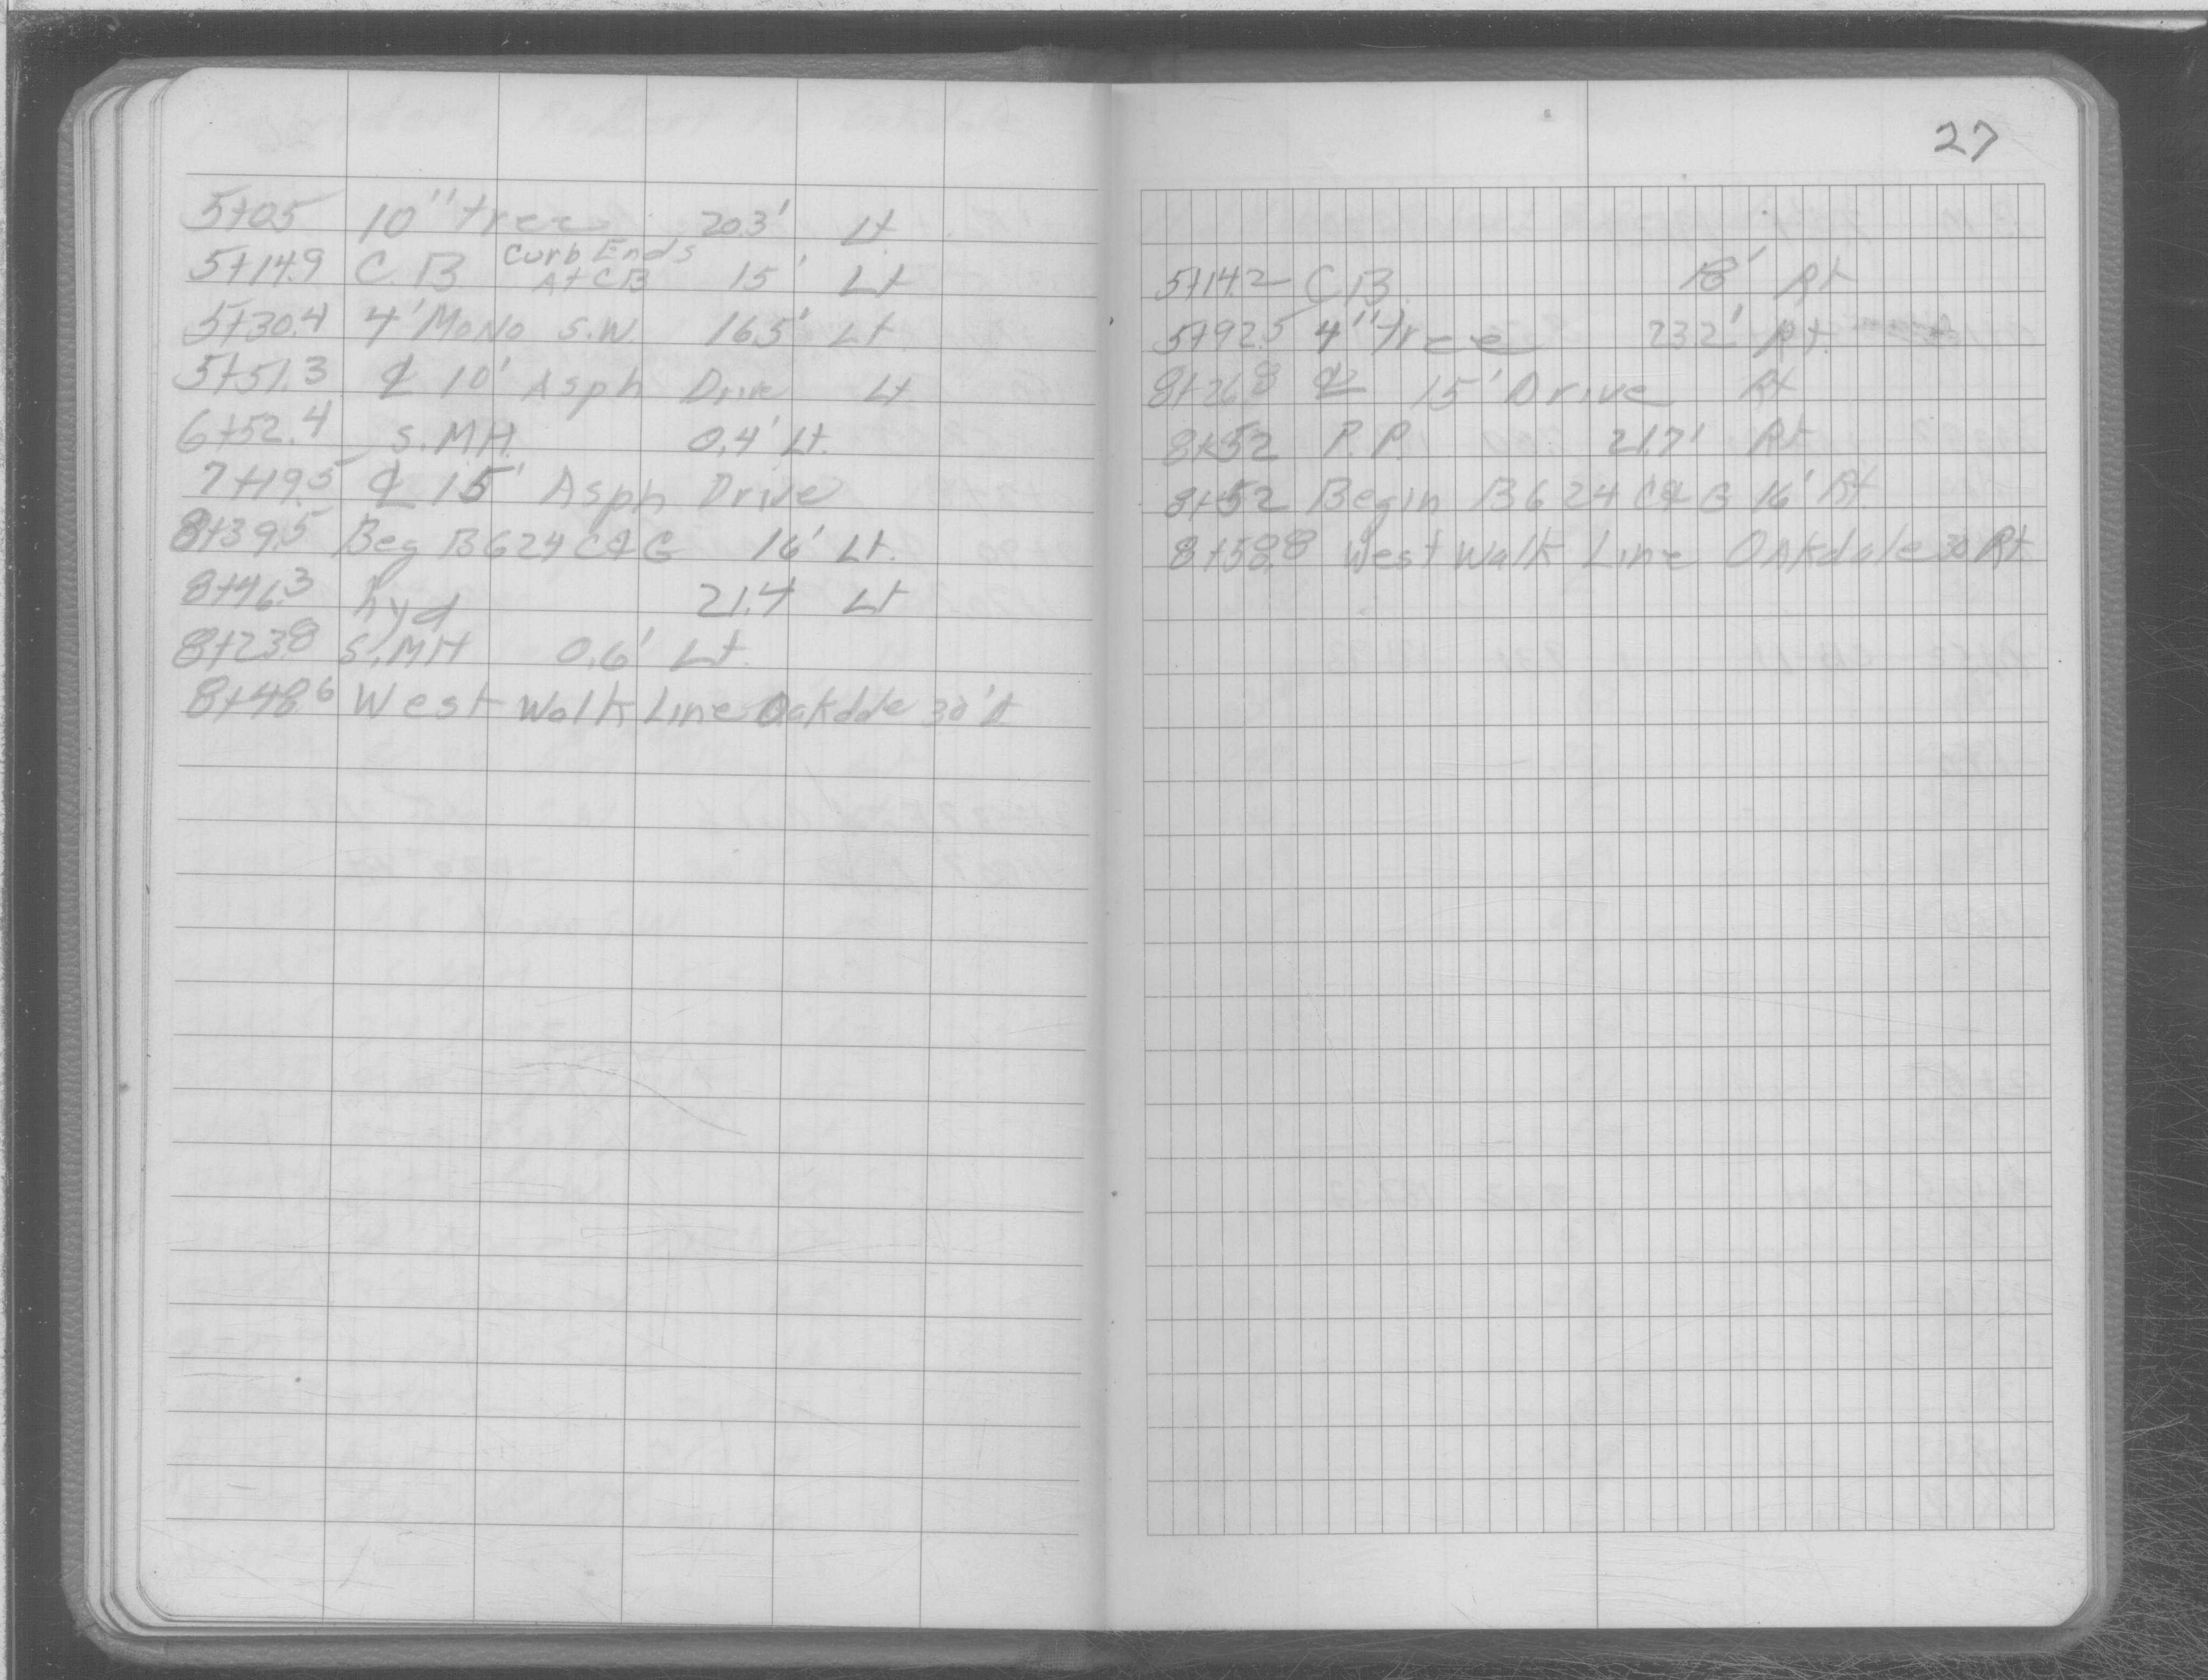 5+05 10" tree 20.3' Lt
5+14.9 C.B. Curb Ends At CB 15' Lt
5+30.4 4' Mono S.W. 16.5' Lt
5+51.3 ℄ 10' Asph Drive Lt
6+52.4 S.MH. 0.4' Lt.
7+19.5 ℄ 15' Asph Drive
8+39.5 Beg B624 C&G 16' Lt.
8+46.3 hyd 21.4 Lt
8+23.8 S.MH 0.6' Lt.
8+48.6 West Walk Line Oakdale 30' Lt
27
5+14.2 CB. Rt
5+92.5 4" tree 23.2' Rt.
8+26.8 ℄ 15' Drive Rt
8+52 P.P. 21.7' Rt
8+52 Begin B624 C&G 16' Rt.
8+58.8 West Walk Line Oakdale 30 Rt